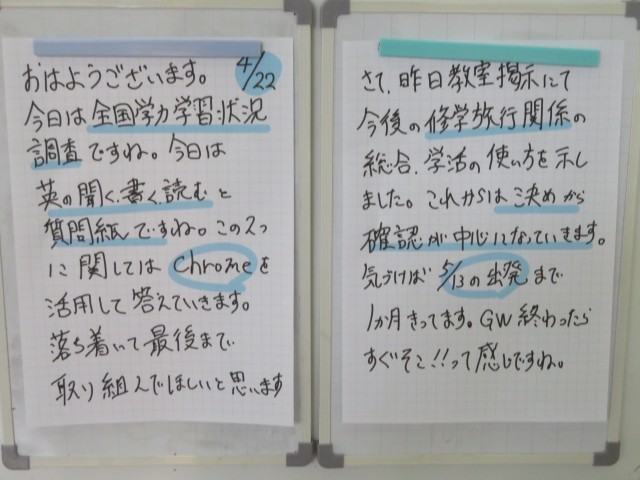 おはようございます。 4/22
今日は全国学力学習状況
調査ですね。今日は
英の聞く、書く、読むと
質問紙ですね。この2つ
に関してはChromeを
活用して答えていきます。
落ち着いて最後まで
取り組んでほしいと思います
さて、昨日教室掲示にて
今後の修学旅行関係の
総合、学活の使い方を示し
ました。これからは決めから
確認が中心になっていきます。
気づけば5/13の出発まで
1か月きってます。GW終わったら
すぐそこ!!って感じですね。